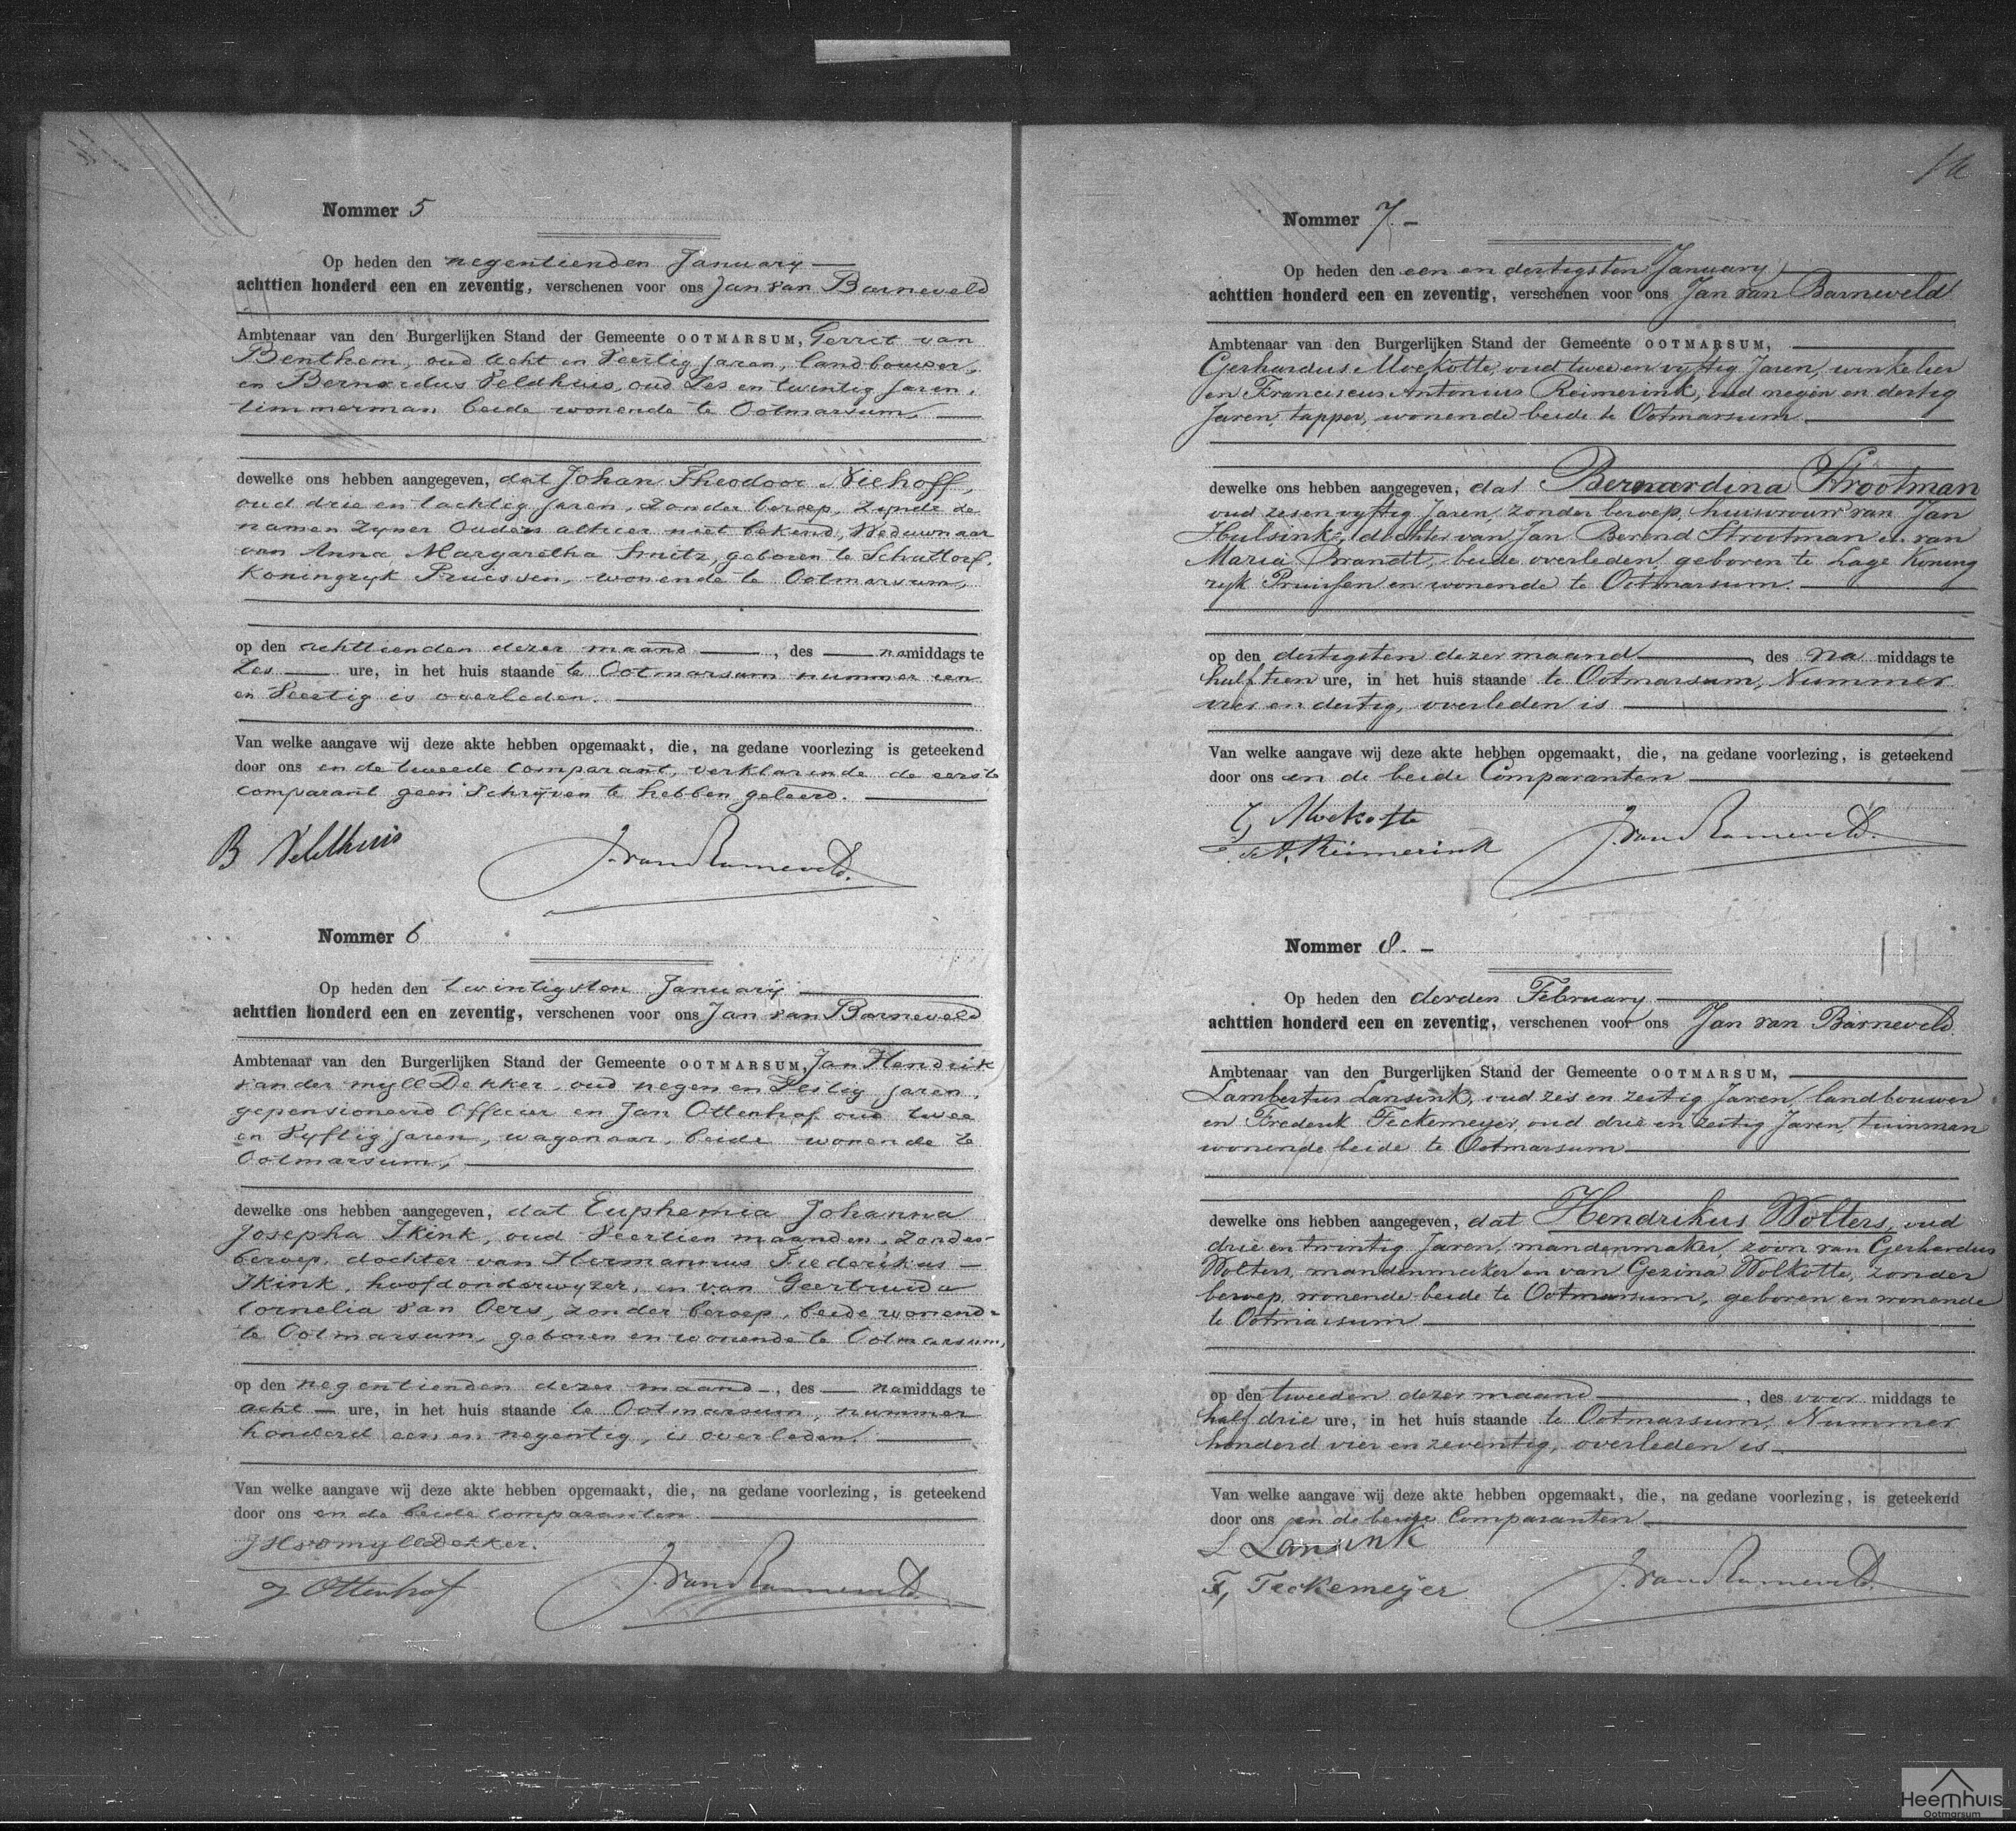 Nommer 5
Op heden den negentienden January
achttien honderd een en zeventig, verschenen voor ons Jan van Barneveld
Ambtenaar van den Burgerlijken Stand der Gemeente OOTMARSUM, Gerrit van
Benthem, oud acht en Veertig jaren, landbouwer,
en Bernardus Veldhuis, oud Zes en twintig jaren,
timmerman beide wonende te Ootmarsum,
dewelke ons hebben aangegeven, dat Johan Theodoor Niehoff,
oud drie en tachtig jaren, zonder beroep, zynde de
namen zyner Ouders alhier niet bekend, Weduwnaar
van Anna Margaretha Smitz, geboren te Schuttorf,
Koningryk Pruessen, wonende te Ootmarsum,
op den achttienden dezer maand , des namiddags te
Zes ure, in het huis staande te Ootmarsum nummer een
en Veertig is overleden.
Van welke aangave wij deze akte hebben opgemaakt, die, na gedane voorlezing is geteekend
door ons en de tweede comparant, verklarende de eerste
comparant geen schryven te hebben geleerd.
B Veldhuis
J. van Barneveld.
Nommer 6
Op heden den twintigsten January
achttien honderd een en zeventig, verschenen voor ons Jan van Barneveld
Ambtenaar van den Burgerlijken Stand der Gemeente OOTMARSUM, Jan Hendrik
van der myll Dekker, oud negen en Zestig jaren,
gepensioneerd Officier en Jan Ottenhof oud twee
en Vyftig jaren, wagenaar, beide wonende te
Ootmarsum,
dewelke ons hebben aangegeven, dat Euphemia Johanna
Josepha Ikink, oud Veertien maanden, zonder
beroep, dochter van Hermannus Frederikus
Ikink, hoofdonderwyzer, en van Geertruida
Cornelia van Oers, zonder beroep, beide wonend=
te Ootmarsum, geboren en wonende te Ootmarsum,
op den negentienden dezer maand , des namiddags te
acht ure, in het huis staande te Ootmarsum, nummer
honderd een en negentig, is overleden.
Van welke aangave wij deze akte hebben opgemaakt, die, na gedane voorlezing, is geteekend
door ons en de beide comparanten.
JHvdmyllDekker.
J Ottenhof
J. van Barneveld.
Nommer 7.
Op heden den een en dertigsten January
achttien honderd een en zeventig, verschenen voor ons Jan van Barneveld
Ambtenaar van den Burgerlijken Stand der Gemeente OOTMARSUM,
Gerhardus Moekotte, oud twee en vyftig Jaren, winkelier
en Franciscus Antonius Reimerink, oud negen en dertig
Jaren, tapper, wonende beide te Ootmarsum
dewelke ons hebben aangegeven, dat Bernardina Strootman
oud zes en vyftig Jaren, zonder beroep, huisvrouw van Jan
Hulsink, dochter van Jan Berend Strootman en van
Maria Brandt, beide overleden, geboren te Lage Koning
ryk Pruissen en wonende te Ootmarsum.
op den dertigsten dezer maand , des na middags te
half tien ure, in het huis staande te Ootmarsum, Nummer
vier en dertig, overleden is
Van welke aangave wij deze akte hebben opgemaakt, die, na gedane voorlezing, is geteekend
door ons en de beide Comparanten
G, Moekotte
Reimerink
J. van Barneveld.
Nommer 8.
Op heden den derden February
achttien honderd een en zeventig, verschenen voor ons Jan van Barneveld
Ambtenaar van den Burgerlijken Stand der Gemeente OOTMARSUM,
Lambertus Lansink, oud zes en zestig Jaren, landbouwer
en Frederik Teckemeyer, oud drie en zestig Jaren, tuinman
wonende beide te Ootmarsum
dewelke ons hebben aangegeven, dat Hendrikus Wolters, oud
drie en twintig Jaren, mandenmaker, zoon van Gerhardus
Wolters, mandenmaker en van Gezina Wolkotte, zonder
beroep, wonende beide te Ootmarsum, geboren en wonende
te Ootmarsum
op den tweeden dezer maand , des voor middags te
half drie ure, in het huis staande te Ootmarsum, Nummer
honderd vier en zeventig, overleden is
Van welke aangave wij deze akte hebben opgemaakt, die, na gedane voorlezing, is geteekend
door ons en de beide Comparanten
L Lansink
F, Teckemeijer
J. van Barneveld.
Heemhuis
Ootmarsum